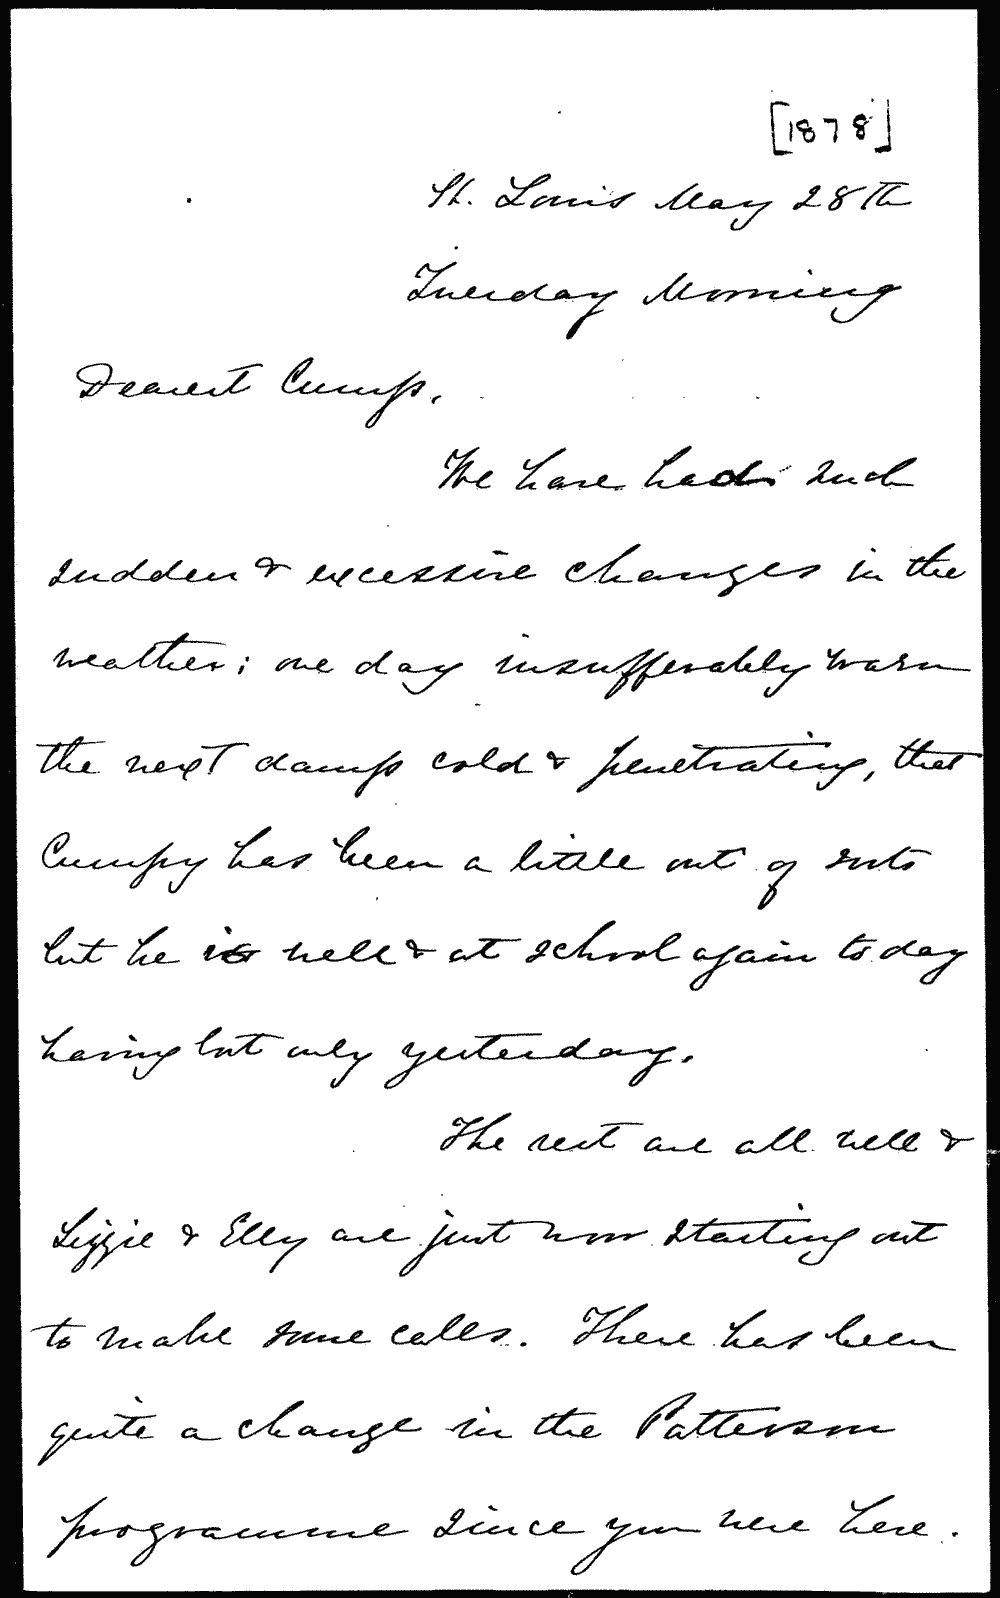 [1878]
St. Louis May 28th
Tuesday Morning
Dearest Cump,
We have had such
sudden & excessive changes in the
weather; one day insufferably warm
the next damp cold & penetrating, that
Cumpy has been a little out of sorts
but he is well & at school again to day
having lost only yesterday.
The rest are all well &
Lizzie & Elly are just now starting out
to make some calls. There has been
quite a change in the Patterson
programme since you were here.